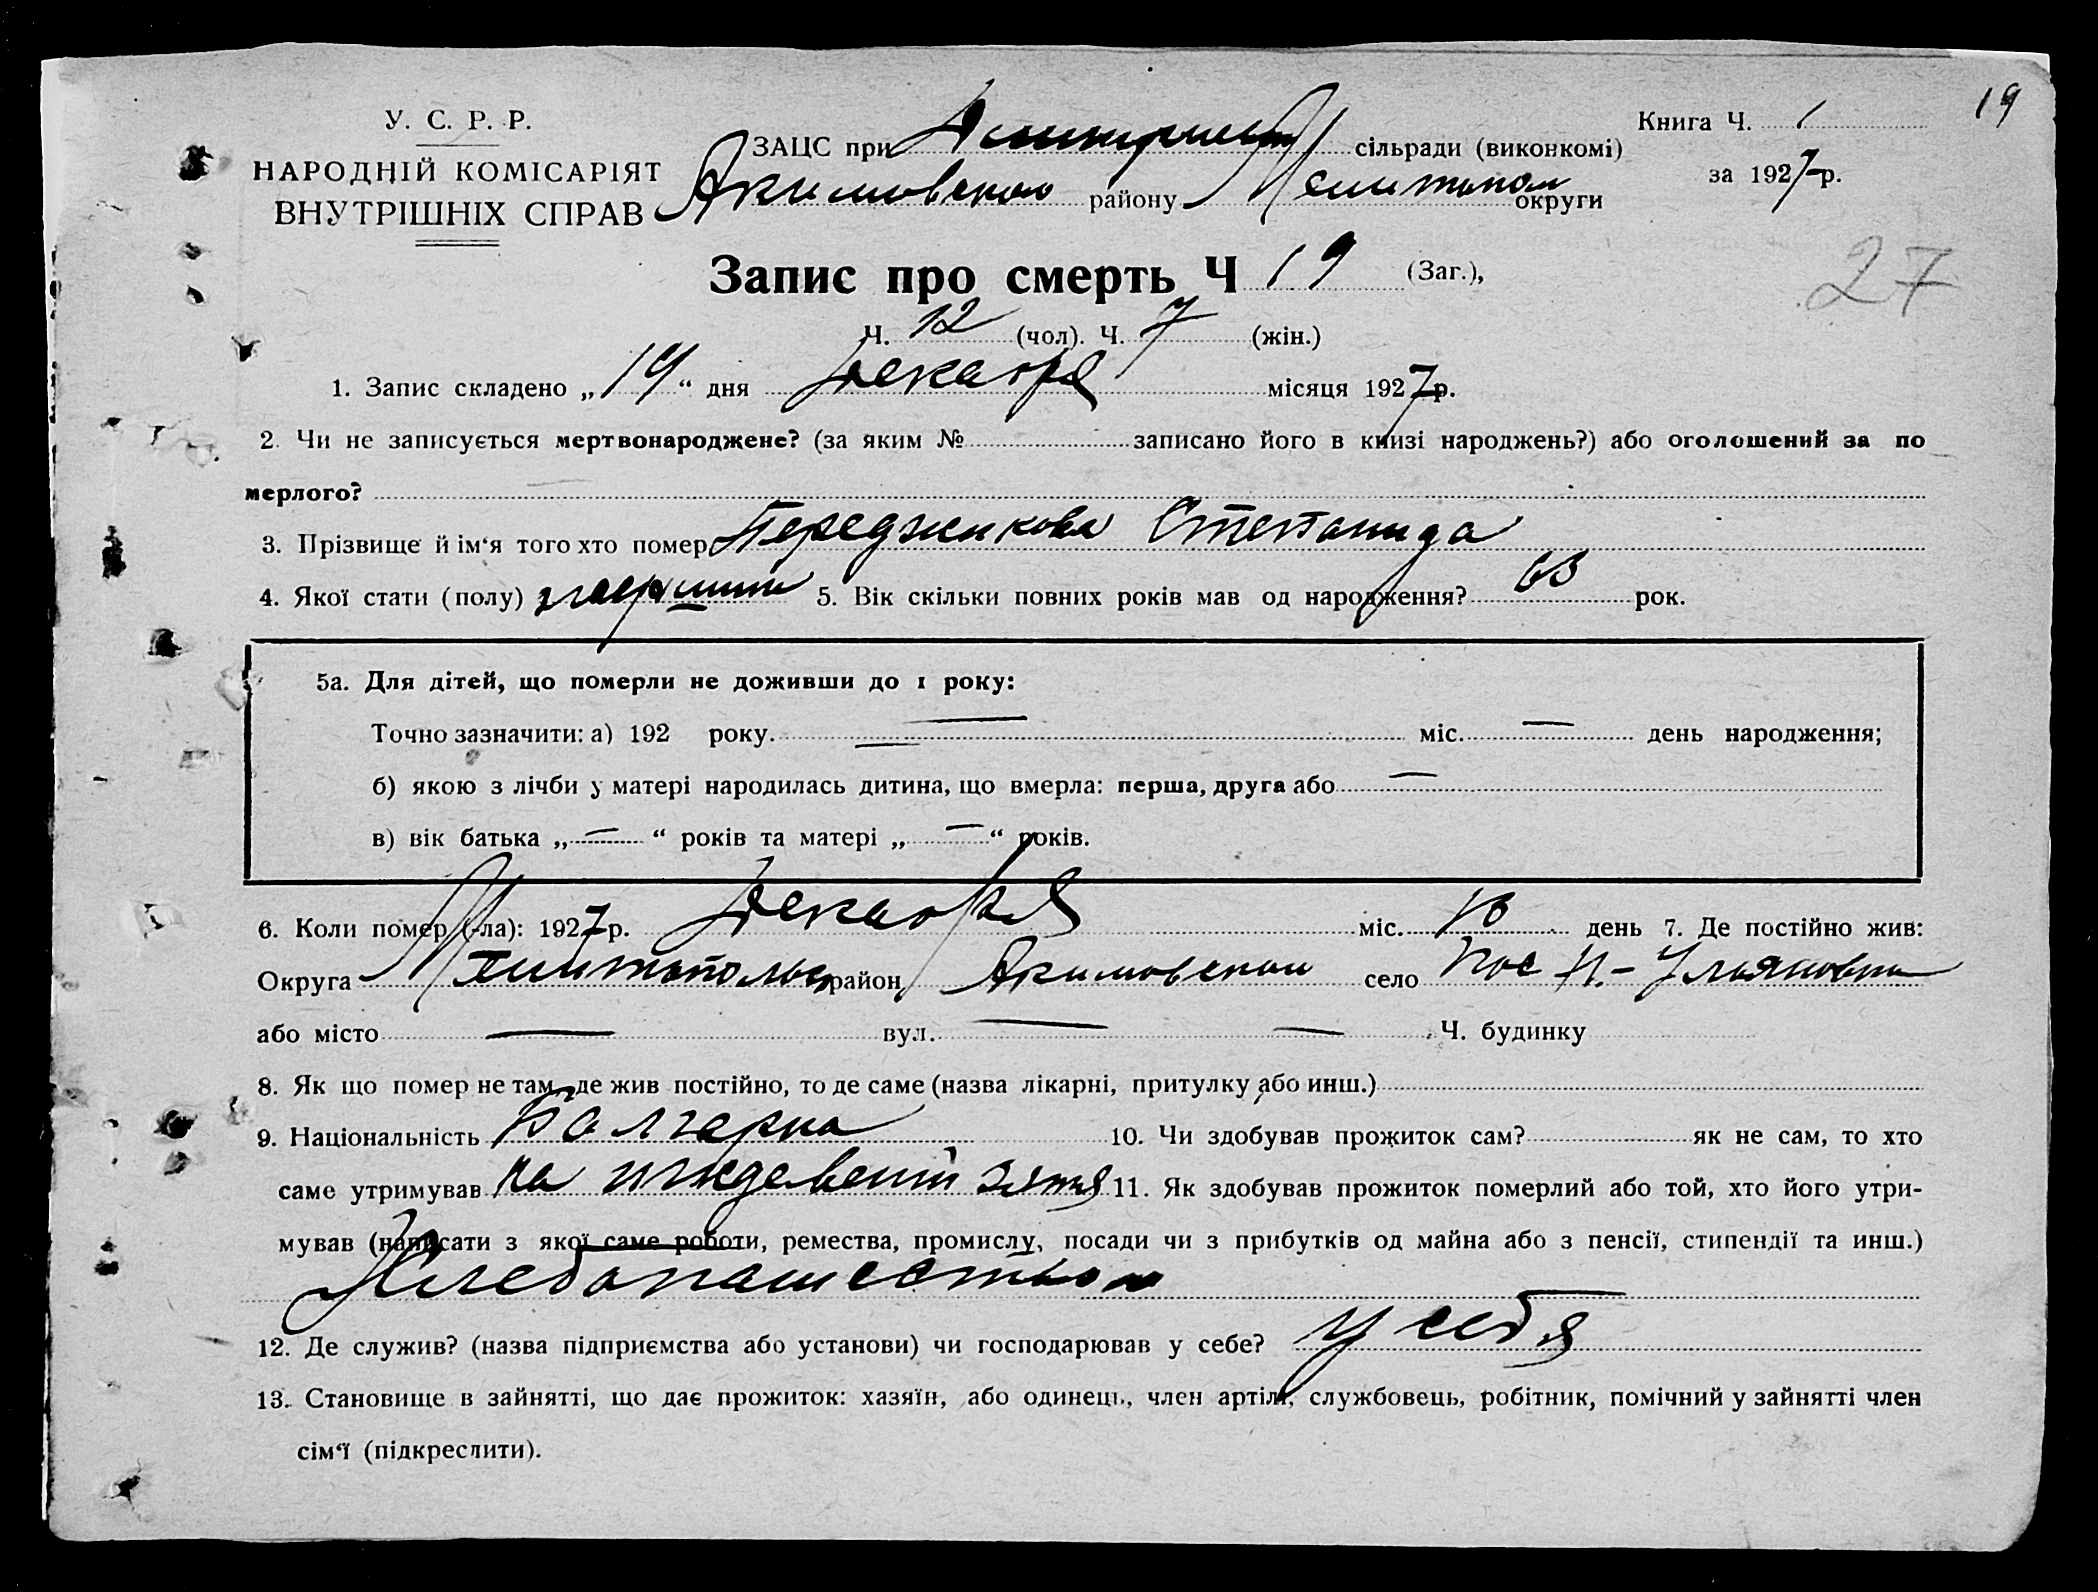 19
У. С. Р. Р.
НАРОДНІЙ КОМІСАРІЯТ
ВНУТРІШНІХ СПРАВ
ЗАЦС при сільради (виконкомі)
Акимовского району Мелитопол округи
Книга Ч. 1
за 1927 р.
27
Запис про смерть Ч 19 (Заг.),
Ч. 12 (чол). Ч. 7 (жін.)
1. Запис складено „19“ дня Декабря місяця 1927 р.
2. Чи не записується мертвонароджене? (за яким № записано його в книзі народжень?) або оголошений за по
мерлого?
3. Прізвище й ім‘я того хто помер Переджикова Степанида
4. Якої стати (полу) 5. Вік скільки повних років мав од народження? 63 рок.
5а. Для дітей, що померли не доживши до 1 року:
Точно зазначити: а) 192 року. — міс. — день народження;
б) якою з лічби у матері народилась дитина, що вмерла: перша, друга або —
в) вік батька „—“ років та матері „—“ років.
6. Коли помер (-ла): 1927 р. Декабря міс. день 7. Де постійно жив:
Округа Мелитопольск район Акимовский село пос Н.-Ульяновка
або місто — вул. — — Ч. будинку
8. Як що помер не там, де жив постійно, то де саме (назва лікарні, притулку або инш.)
9. Національність Болгарка 10. Чи здобував прожиток сам? як не сам, то хто
саме утримував на иждевении зятя 11. Як здобував прожиток померлий або той, хто його утри-
мував (написати з якої саме роботи, ремества, промислу, посади чи з прибутків од майна або з пенсії, стипендії та инш.)
Хлебопашеством
12. Де служив? (назва підприємства або установи) чи господарював у себе? у себя
13. Становище в зайнятті, що дає прожиток: хазяїн, або одинець, член артілі, службовець, робітник, помічний у зайнятті член
сім‘ї (підкреслити).